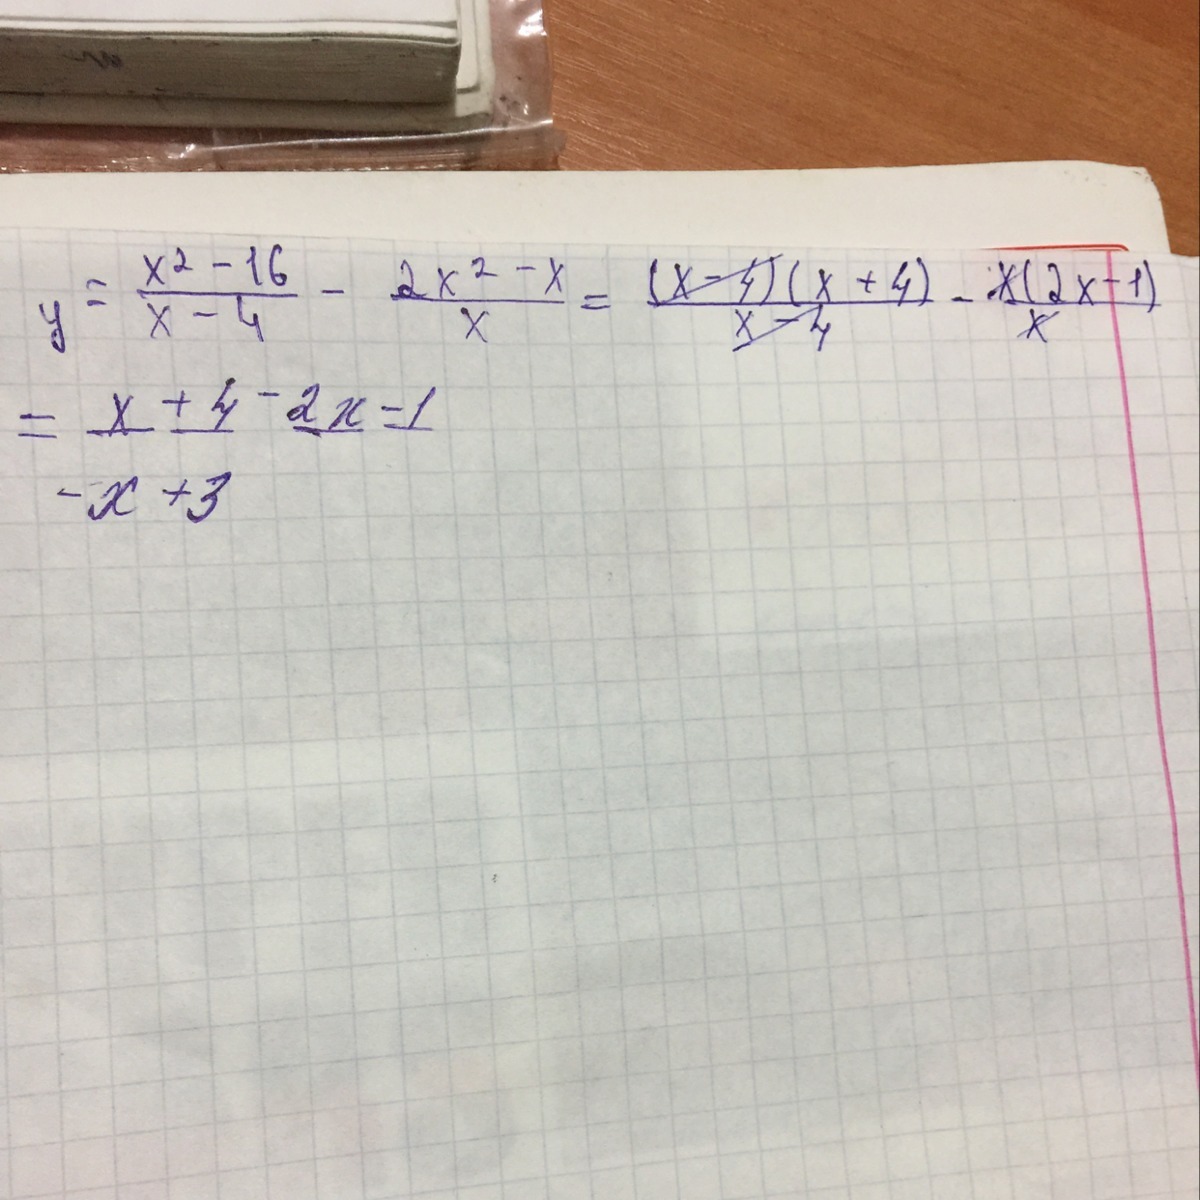 y = (x² - 16)/(x - 4) - (2x² - x)/x = ((x - 4)(x + 4))/(x - 4) - (x(2x - 1))/x
= x + 4 - 2x = 1
-x + 3